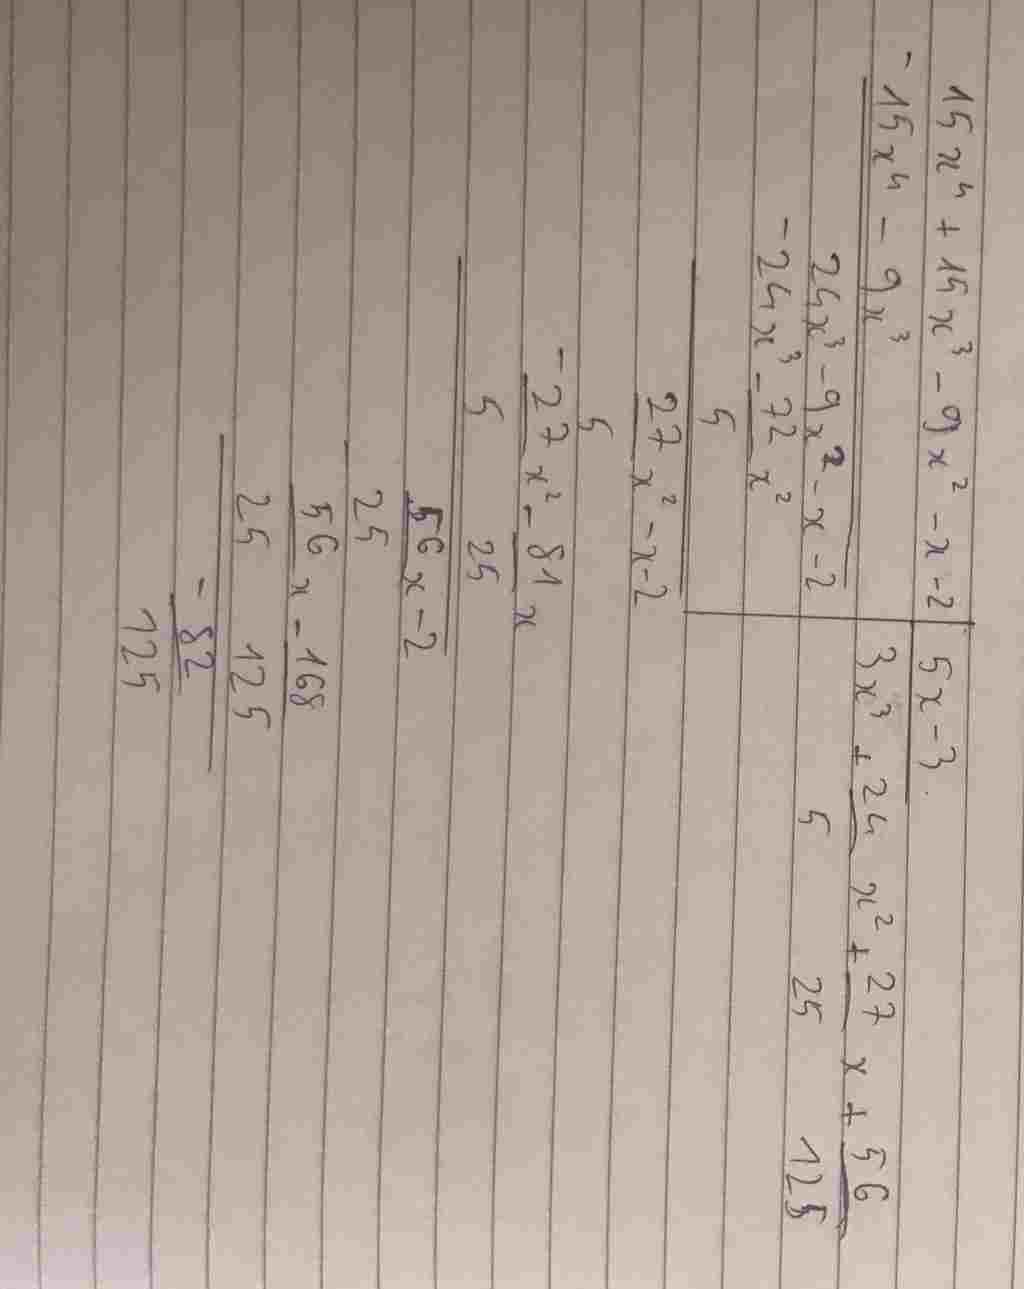 15x⁴ + 15x³ - 9x² - x - 2 | 5x - 3
- 15x⁴ - 9x³ | 3x³ + 24/5 x² + 27/25 x + 56/125
24x³ - 9x² - x - 2
- 24x³ - 72/5 x²
27/5 x² - x - 2
- 27/5 x² - 81/25 x
56/25 x - 2
56/25 x - 168/125
- 82/125